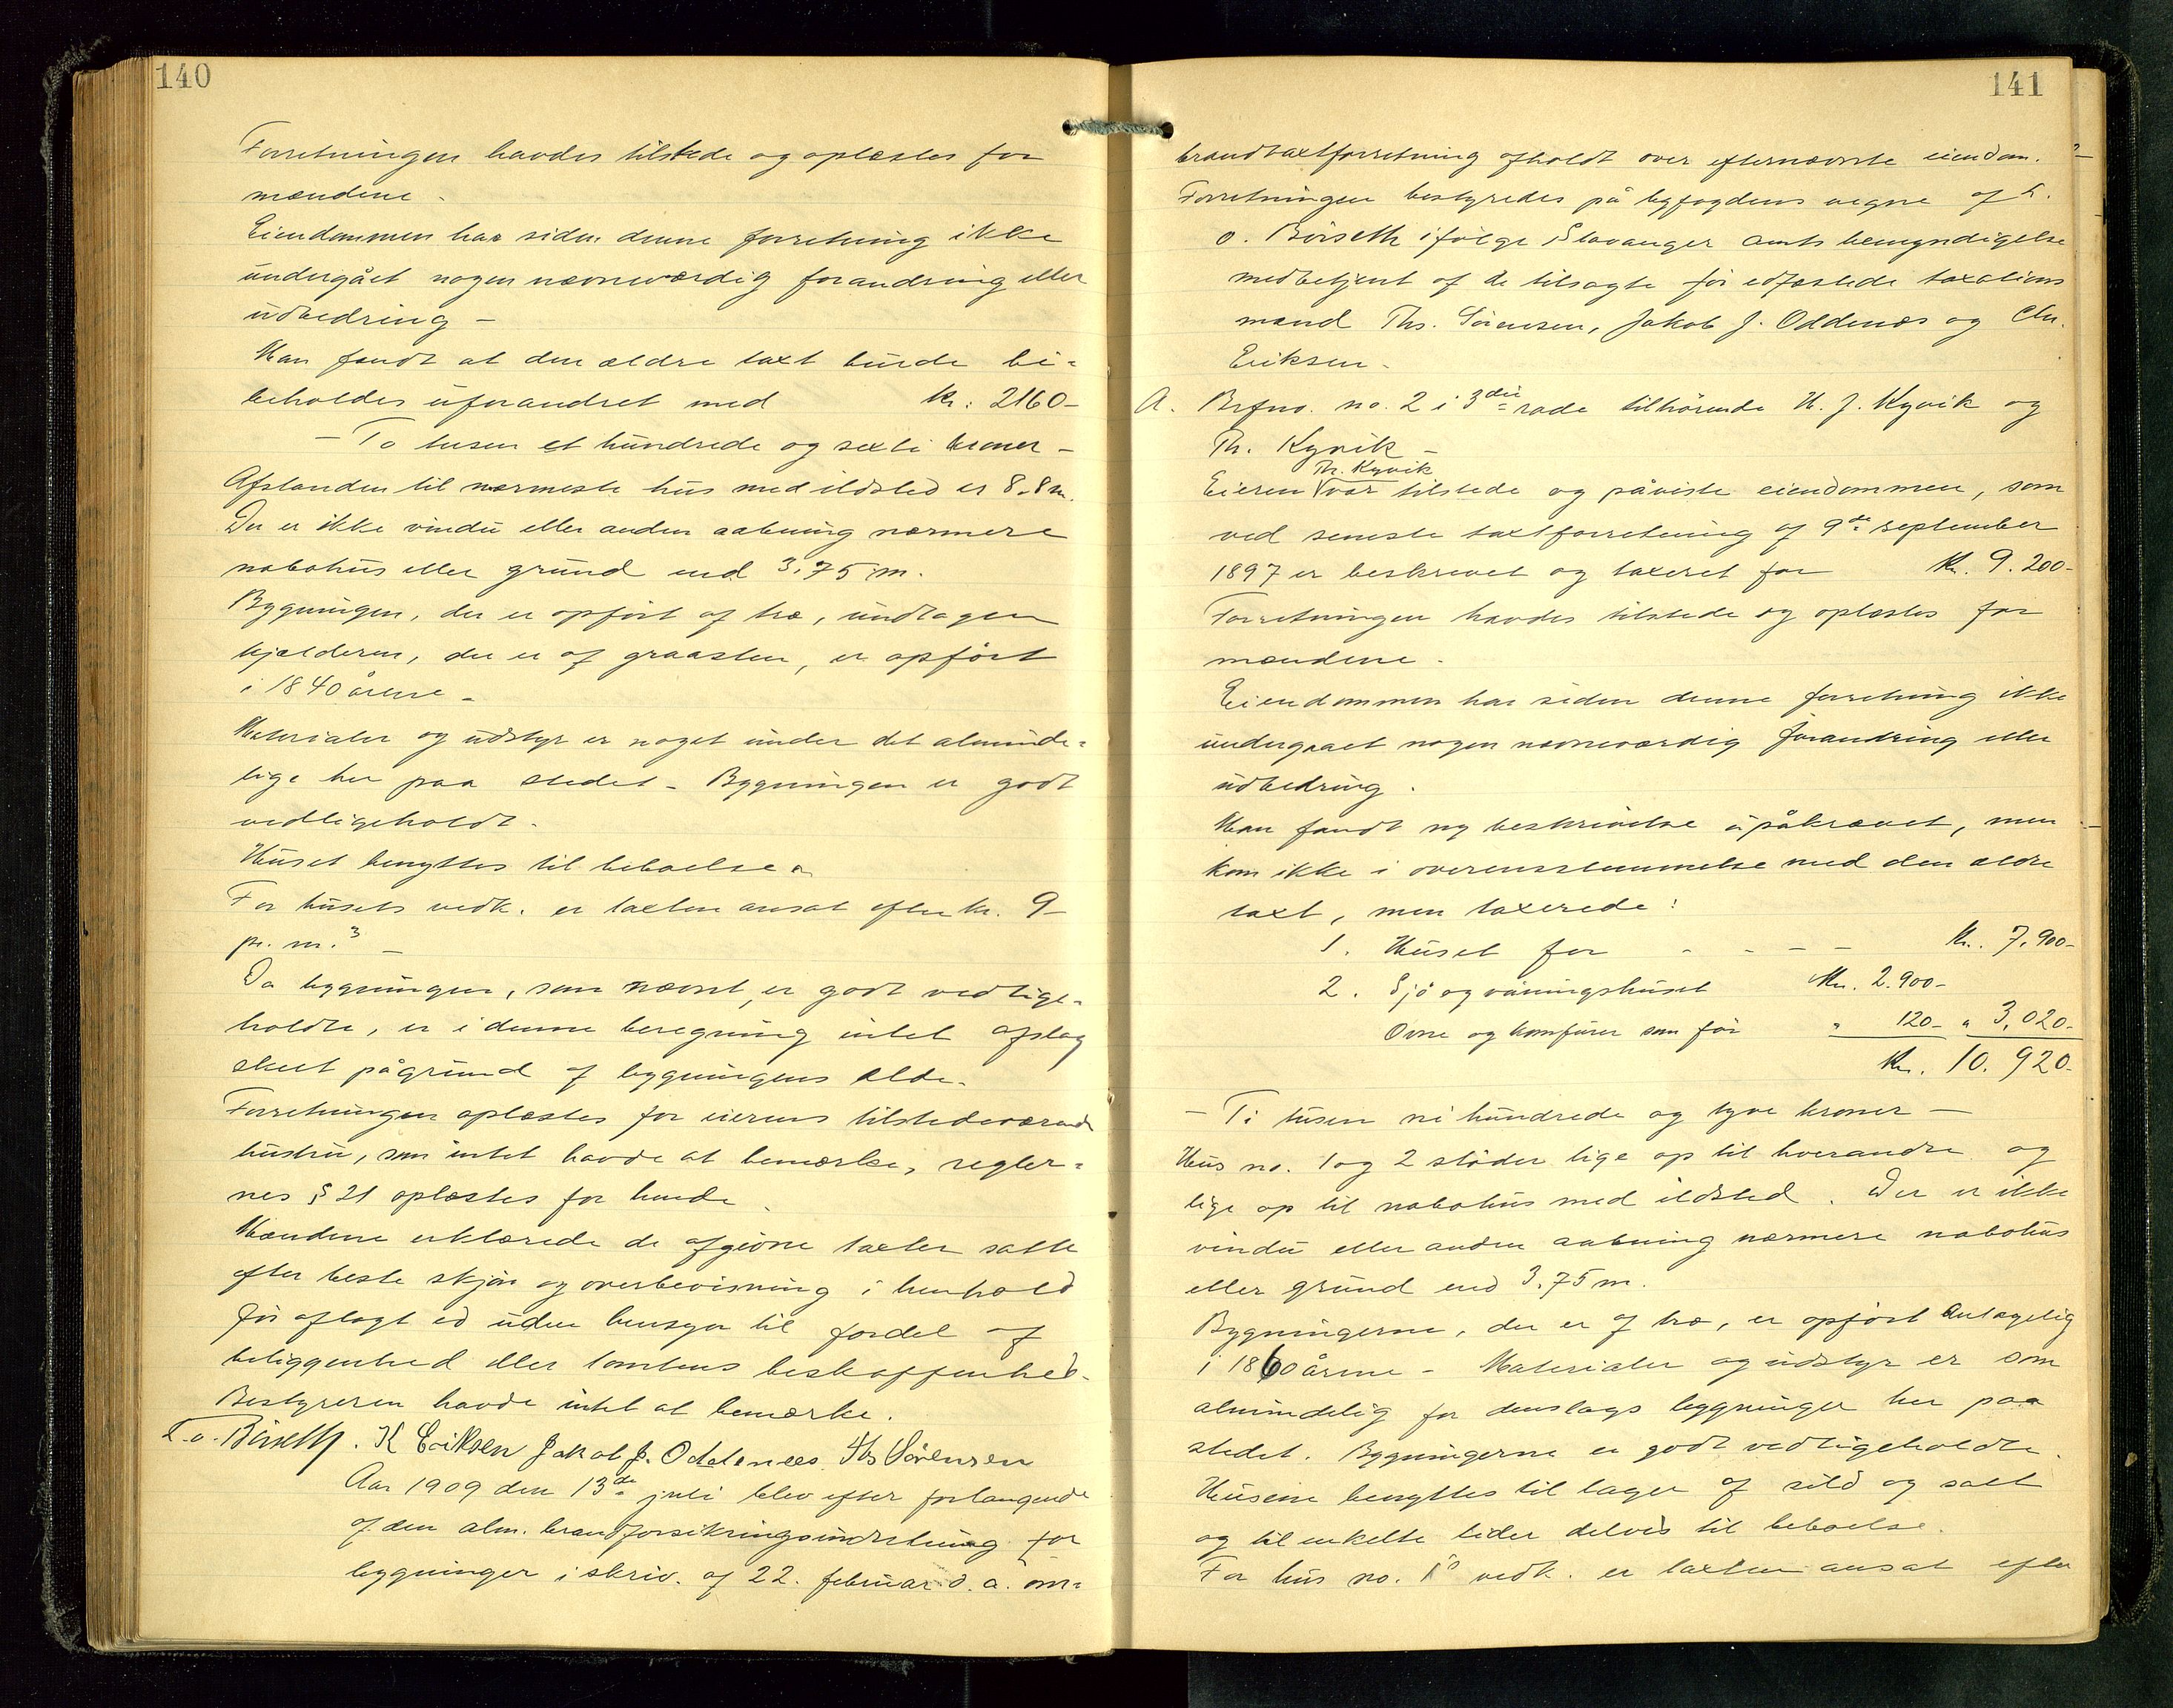 140
Forretningen havdes tilstede og oplæstes for
mændene.
Eiendommen har siden denne forretning ikke
undergået nogen nævneværdig forandring eller
udbedring –
Man fandt at den ældre taxt burde bi-
beholdes uforandret med kr: 2160–
– To tusen et hundrede og sexti kroner –
Afstanden til nærmeste hus med ildsted er 8.8 m.
Der er ikke vindu eller anden aabning nærmere
nabohus eller grund end 3.75 m.
Bygningen, der er opført af træ, undtagen
kjælderen, der er af graasten, er opført
i 1840 årene –
Materialer og udstyr er noget under det alminde-
lige her paa stedet – Bygningen er godt
vedligeholdt.
Huset benyttes til beboelse.
For husets vedk. er taxten ansat efter kr. 9–
pr. m.³ –
Da bygningen, som nævnt, er godt vedlige-
holdte, er i denne beregning intet afslag
skeet på grund af bygningens ælde.
Forretningen oplæstes for eierens tilstedeværende
hustru, som intet havde at bemærke, regler-
nes § 21 oplæstes for hende.
Mændene erklærede de afgivne taxter satte
efter beste skjøn og overbevisning i henhold
før aflagt ed uden hensyn til fordel af
beliggenhed eller tomtens beskaffenhed.
Bestyreren havde intet at bemærke.
T. o. Børseth. K Eriksen Jakob J. Oddenees. Ths Sørensen
Aar 1909 den 13de juli blev efter forlangende
af den alm. brandforsikringsindretning for
bygninger i skriv. af 22. februar d. a. om-
141
brandtaxtforretning afholdt over efternævnte eiendom.
Forretningen bestyredes på byfogdens vegne af T.
o. Børseth ifølge Stavanger amts bemyndigelse
medbetjent af de tilsagte før edfæstede taxations
mænd Ths. Sørensen, Jakob J. Oddenæs og Chr.
Eriksen.
A. Brfno. no. 2 i 3die rode tilhørende H. J. Kyvik og
Th. Kyvik –
Th. Kyvik
Eieren var tilstede og påviste eiendommen, som
ved seneste taxtforretning af 9de september
1897 er beskrevet og taxeret for Kr. 9.200–
Forretningen havdes tilstede og oplæstes for
mændene.
Eiendommen har siden denne forretning ikke
undergaaet nogen nævneværdig forandring eller
udbedring.
Man fandt ny beskrivelse upåkrævet, men
kom ikke i overensstemmelse med den ældre
taxt, men taxerede:
1. Huset for - - – – Kr. 7,900–
2. Sjø og våningshuset Kr. 2.900–
Ovne og komfurer som før " 120– " 3,020–
Kr. 10.920–
– Ti tusen ni hundrede og tyve kroner –
Hus no. 1 og 2 støder lige op til hverandre og
lige op til nabohus med ildsted. Der er ikke
vindu eller anden aabning nærmere nabohus
eller grund end 3.75 m.
Bygningerne, der er af træ, er opført antagelig
i 1860 årene – Materialer og udstyr er som
almindelig for denslags bygninger her paa
stedet. Bygningerne er godt vedligeholdte.
Husene benyttes til lager af sild og salt
og til enkelte tider delvis til beboelse.
For hus no. 1s vedk. er taxten ansat efter